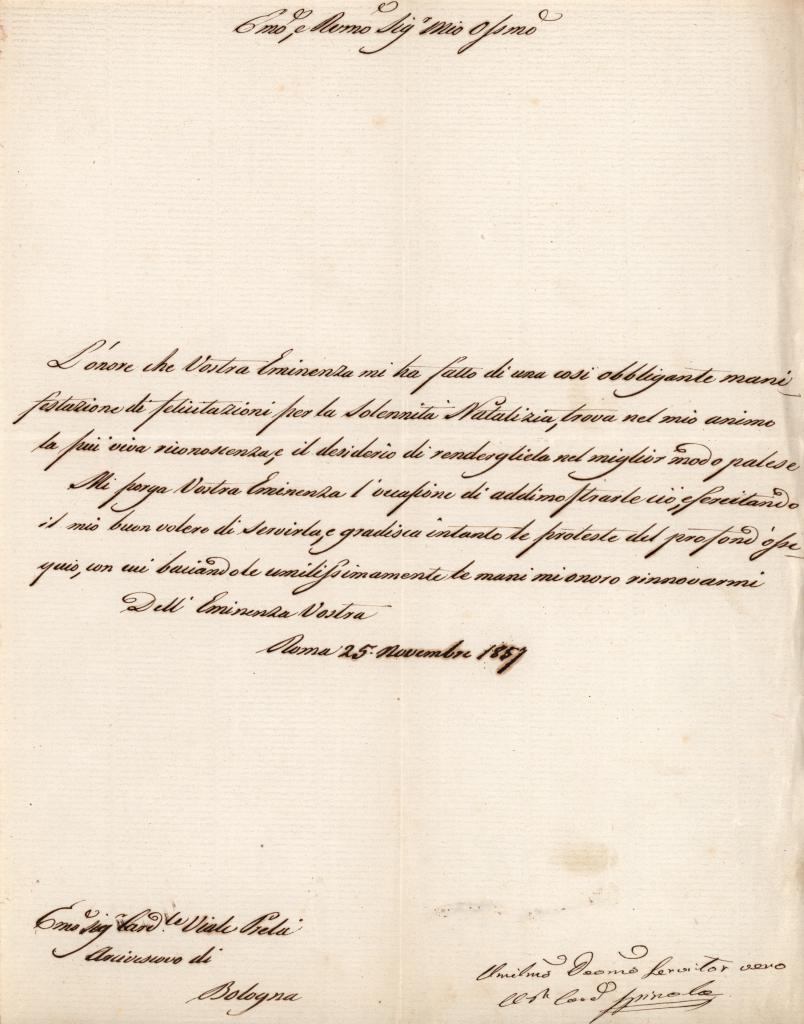 Emo, e Remo Sigr mio Ossmo
L'onore che Vostra Eminenza mi ha fatto di una così obbligante mani
festazione di felicitazioni per la Solennità Natalizia, trova nel mio animo
la più viva riconoscenza, e il desiderio di rendergliela nel miglior modo palese
Mi porga Vostra Eminenza l'occasione di addimostrarle ciò, esercitando
il mio buon volere di servirla, e gradisca intanto le proteste del profond'osse-
quio, con cui baciandole umilissimamente le mani mi onoro rinnovarmi
Dell'Eminenza Vostra
Roma 25. Novembre 1857
Emo Sigr Cardle Viale Prelà
Arcivescovo di
Bologna
Umilmo Devmo Servitor vero
Card Spinola